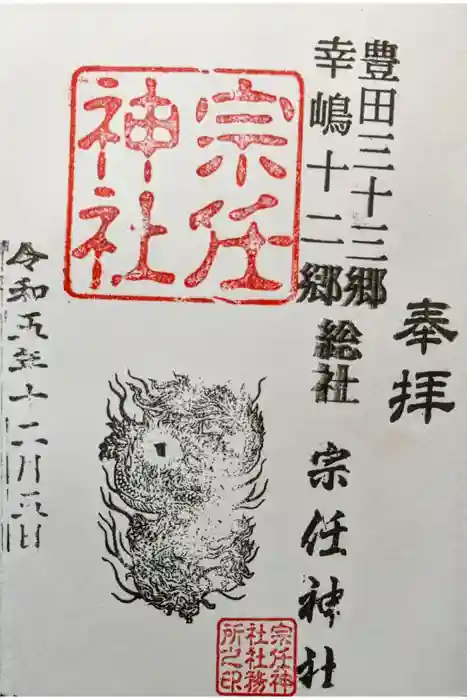 奉拝
豊田三十三郷
幸嶋十二郷
総社
宗任神社
宗任
神社
宗任神
社社務
所之印
令和五年十二月三日